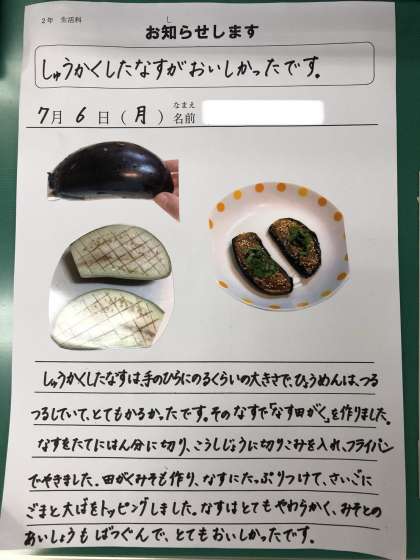 2年 生活科
お知らせします
し
しゅうかくしたなすがおいしかったです。
7月 6日(月) 名前
なまえ
しゅうかくしたなすは、手のひらにのるくらいの大きさで、ひょうめんは、つる
つるしていて、とてもかるかったです。そのなすで「なす田がく」を作りました。
なすをたてにはん分に切り、こうしじょうに切りこみを入れ、フライパン
でやきました。田がくみそも作り、なすにたっぷりつけて、さいごに
ごまと大ばをトッピングしました。なすはとてもやわらかく、みそとの
あいしょうもばつぐんで、とてもおいしかったです。